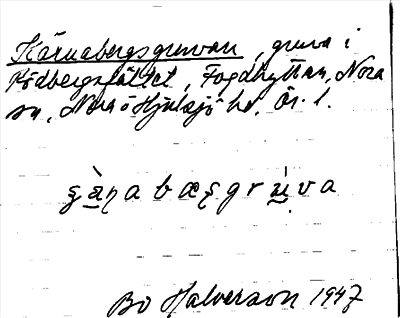 Kärnabergsgruvan, gruva i
Rödbergsfältet, Fogdhyttan, Nora
sn, Nora o Hjulsjö hd, Ör. l.
ʂä̀ṇabæʂgrù̇va
Bo Halverson 1947